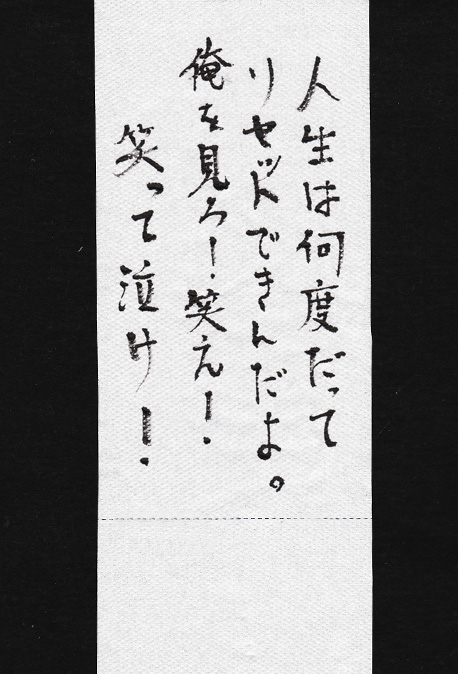 人生は何度だって
リセットできんだよ。
俺を見ろ！笑え！
笑って泣け！